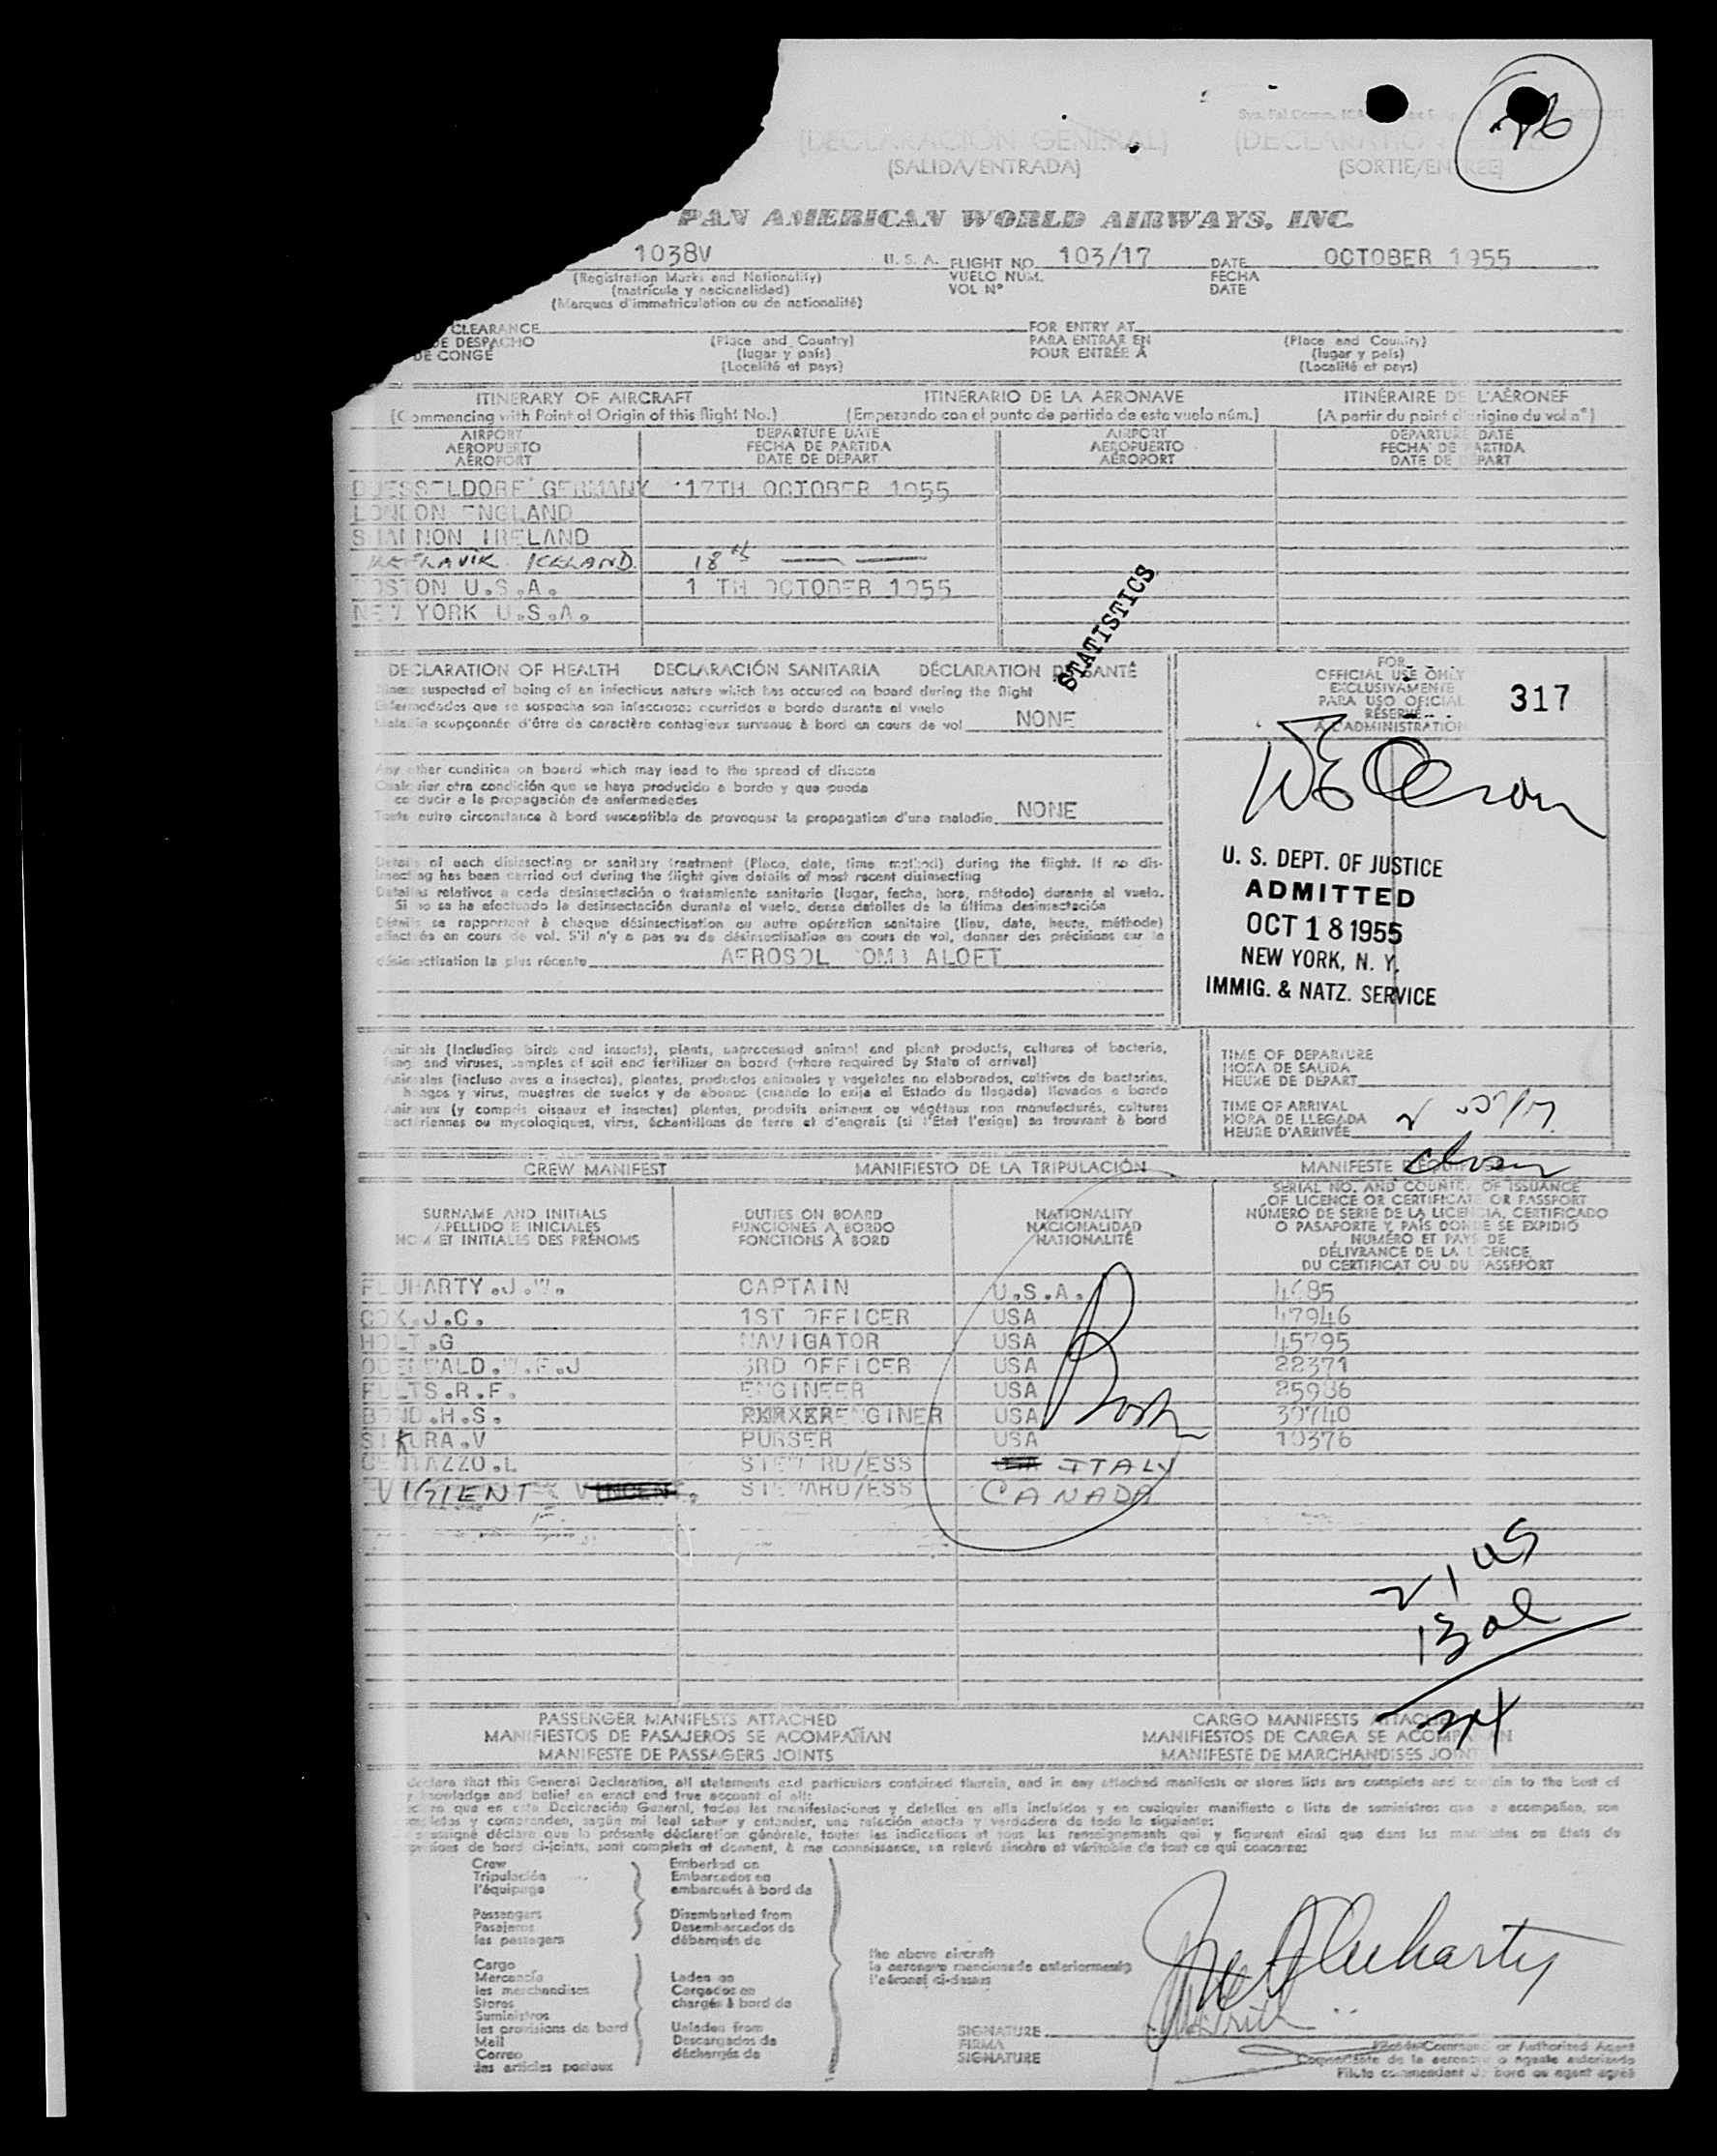 (DECLARACIÓN GENERAL)
(SALIDA/ENTRADA)
(SORTIE/ENTRÉE)
26
PAN AMERICAN WORLD AIRWAYS, INC.
1038V U. S. A. FLIGHT NO. 103/17 DATE OCTOBER 1955
VUELO NUM. FECHA
VOL N° DATE
(Registration Marks and Nationality)
(matrícula y nacionalidad)
(Marques d'immatriculation ou de nationalité)
CLEARANCE FOR ENTRY AT
DE DESPACHO (Place and Country) PARA ENTRAR EN (Place and Country)
DE CONGÉ (lugar y país) POUR ENTRÉE À (lugar y país)
(Localité et pays) (Localité et pays)
ITINERARY OF AIRCRAFT ITINERARIO DE LA AERONAVE ITINÉRAIRE DE L'AÉRONEF
(Commencing with Point of Origin of this flight No.) (Empezando con el punto de partida de este vuelo núm.) (A partir du point d'origine du vol n°)
AIRPORT DEPARTURE DATE AIRPORT DEPARTURE DATE
AEROPUERTO FECHA DE PARTIDA AEROPUERTO FECHA DE PARTIDA
AÉROPORT DATE DE DÉPART AÉROPORT DATE DE DÉPART
DUESSELDORF GERMANY 17TH OCTOBER 1955
LONDON ENGLAND
SHANNON IRELAND
KEFLAVIK ICELAND 18th
BOSTON U.S.A. 1 TH OCTOBER 1955
NEW YORK U.S.A.
STATISTICS
DECLARATION OF HEALTH DECLARACIÓN SANITARIA DÉCLARATION DE SANTÉ
Illness suspected of being of an infectious nature which has occured on board during the flight
Enfermedades que se sospecha son infecciosas ocurridas a bordo durante el vuelo
Maladie soupçonnée d'être de caractère contagieux survenue à bord en cours de vol NONE
Any other condition on board which may lead to the spread of disease
Cualquier otra condición que se haya producido a bordo y que pueda
conducir a la propagación de enfermedades
Toute autre circonstance à bord susceptible de provoquer la propagation d'une maladie NONE
Details of each disinsecting or sanitary treatment (Place, date, time method) during the flight. If no dis-
insecting has been carried out during the flight give details of most recent disinsecting
Detalles relativos a cada desinsectación o tratamiento sanitario (lugar, fecha, hora, método) durante el vuelo.
Si no se ha efectuado la desinsectación durante el vuelo, dense detalles de la última desinsectación
Détails se rapportant à chaque désinsectisation ou autre opération sanitaire (lieu, date, heure, méthode)
effectuée en cours de vol. S'il n'y a pas eu de désinsectisation en cours de vol, donner des précisions sur la
désinsectisation la plus récente AEROSOL OMB ALOFT
FOR
OFFICIAL USE ONLY
EXCLUSIVAMENTE
PARA USO OFICIAL
RÉSERVÉ
A L'ADMINISTRATION
317
U. S. DEPT. OF JUSTICE
ADMITTED
OCT 18 1955
NEW YORK, N. Y.
IMMIG. & NATZ. SERVICE
Animals (Including birds and insects), plants, unprocessed animal and plant products, cultures of bacteria,
fungi and viruses, samples of soil and fertilizer on board (where required by State of arrival)
Animales (incluso aves e insectos), plantas, productos animales y vegetales no elaborados, cultivos de bacterias,
hongos y virus, muestras de suelos y de abonos (cuando lo exija el Estado de llegada) llevados a bordo
Animaux (y compris oiseaux et insectes) plantes, produits animaux ou végétaux non manufacturés, cultures
bactériennes ou mycologiques, virus, échantillons de terre et d'engrais (si l'État l'exige) se trouvant à bord
TIME OF DEPARTURE
HORA DE SALIDA
HEURE DE DÉPART
TIME OF ARRIVAL
HORA DE LLEGADA
HEURE D'ARRIVÉE
CREW MANIFEST MANIFIESTO DE LA TRIPULACIÓN MANIFESTE D'ÉQUIPAGE
SURNAME AND INITIALS DUTIES ON BOARD NATIONALITY SERIAL NO. AND COUNTRY OF ISSUANCE
APELLIDO E INICIALES FUNCIONES A BORDO NACIONALIDAD OF LICENCE OR CERTIFICATE OR PASSPORT
NOM ET INITIALES DES PRÉNOMS FONCTIONS À BORD NATIONALITÉ NÚMERO DE SERIE DE LA LICENCIA, CERTIFICADO
O PASAPORTE Y PAÍS DONDE SE EXPIDIÓ
NUMÉRO ET PAYS DE
DÉLIVRANCE DE LA LICENCE
DU CERTIFICAT OU DU PASSEPORT
FLUHARTY.J.W. CAPTAIN U.S.A. 4685
COX.J.C. 1ST OFFICER USA 47946
HOLT.G NAVIGATOR USA 45795
ODENWALD.W.F.J 3RD OFFICER USA 22371
FULTS.R.F. ENGINEER USA
BOND.H.S. ENGINER USA 39740
SIKURA.V PURSER USA 10376
STEWARD/ESS ITALY
VIGIENT STEWARD/ESS CANADA
21 US
13 al
34
PASSENGER MANIFESTS ATTACHED CARGO MANIFESTS ATTACHED
MANIFIESTOS DE PASAJEROS SE ACOMPAÑAN MANIFIESTOS DE CARGA SE ACOMPAÑAN
MANIFESTE DE PASSAGERS JOINTS MANIFESTE DE MARCHANDISES JOINT
declare that this General Declaration, all statements and particulars contained therein, and in any attached manifests or stores lists are complete and contain to the best of
my knowledge and belief an exact and true account of all:
declaro que en esta Declaración General, todas las manifestaciones y detalles en ella incluídos y en cualquier manifiesto o lista de suministros que se acompañen, son
completas y comprenden, según mi leal saber y entender, una relación exacta y verdadera de todo lo siguiente:
soussigné déclare que la présente déclaration générale, toutes les indications et tous les renseignements qui y figurent ainsi que dans les manifestes ou états de
provisions de bord ci-joints, sont complets et donnent, à ma connaissance, un relevé sincère et véritable de tout ce qui concerne:
Crew Embarked on
Tripulación Embarcados en
l'équipage embarqués à bord de
Passengers Disembarked from
Pasajeros Desembarcados de
les passagers débarqués de
the above aircraft
la aeronave mencionada anteriormente
l'aéronef ci-dessus
Cargo
Mercancía Laden on
les marchandises Cargados en
Stores chargés à bord de
Suministros
les provisions de bord Unladen from
Mail Descargados de
Correo déchargés de
les articles postaux
SIGNATURE
FIRMA
SIGNATURE
Pilot-in-Command or Authorized Agent
Comandante de la aeronave o agente autorizado
Pilote commandant de bord ou agent agréé